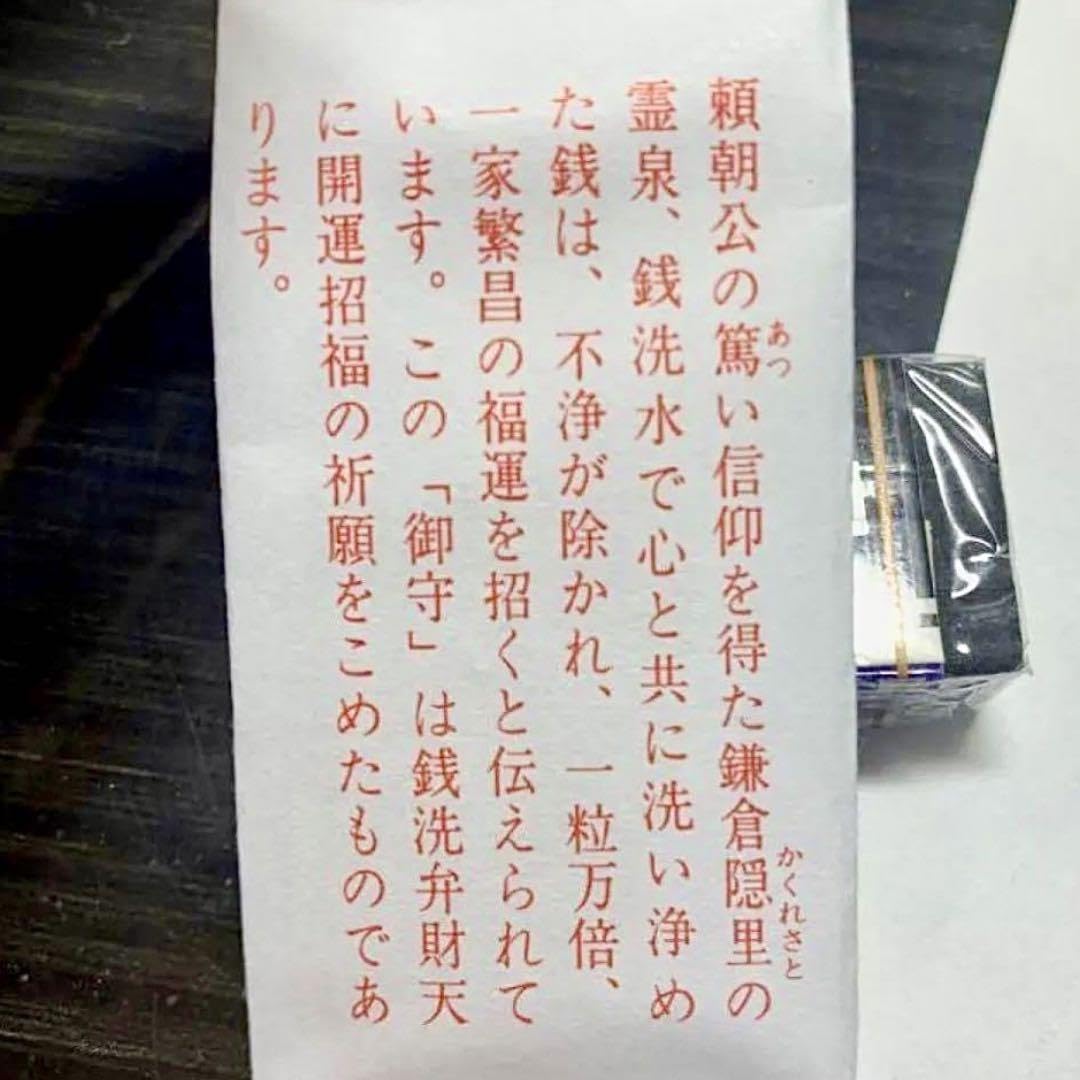 頼朝公の篤い信仰を得た鎌倉隠里の
あつ
かくれざと
霊泉、銭洗水で心と共に洗い浄め
た銭は、不浄が除かれ、一粒万倍、
一家繁昌の福運を招くと伝えられて
います。この「御守」は銭洗弁財天
に開運招福の祈願をこめたものであ
ります。